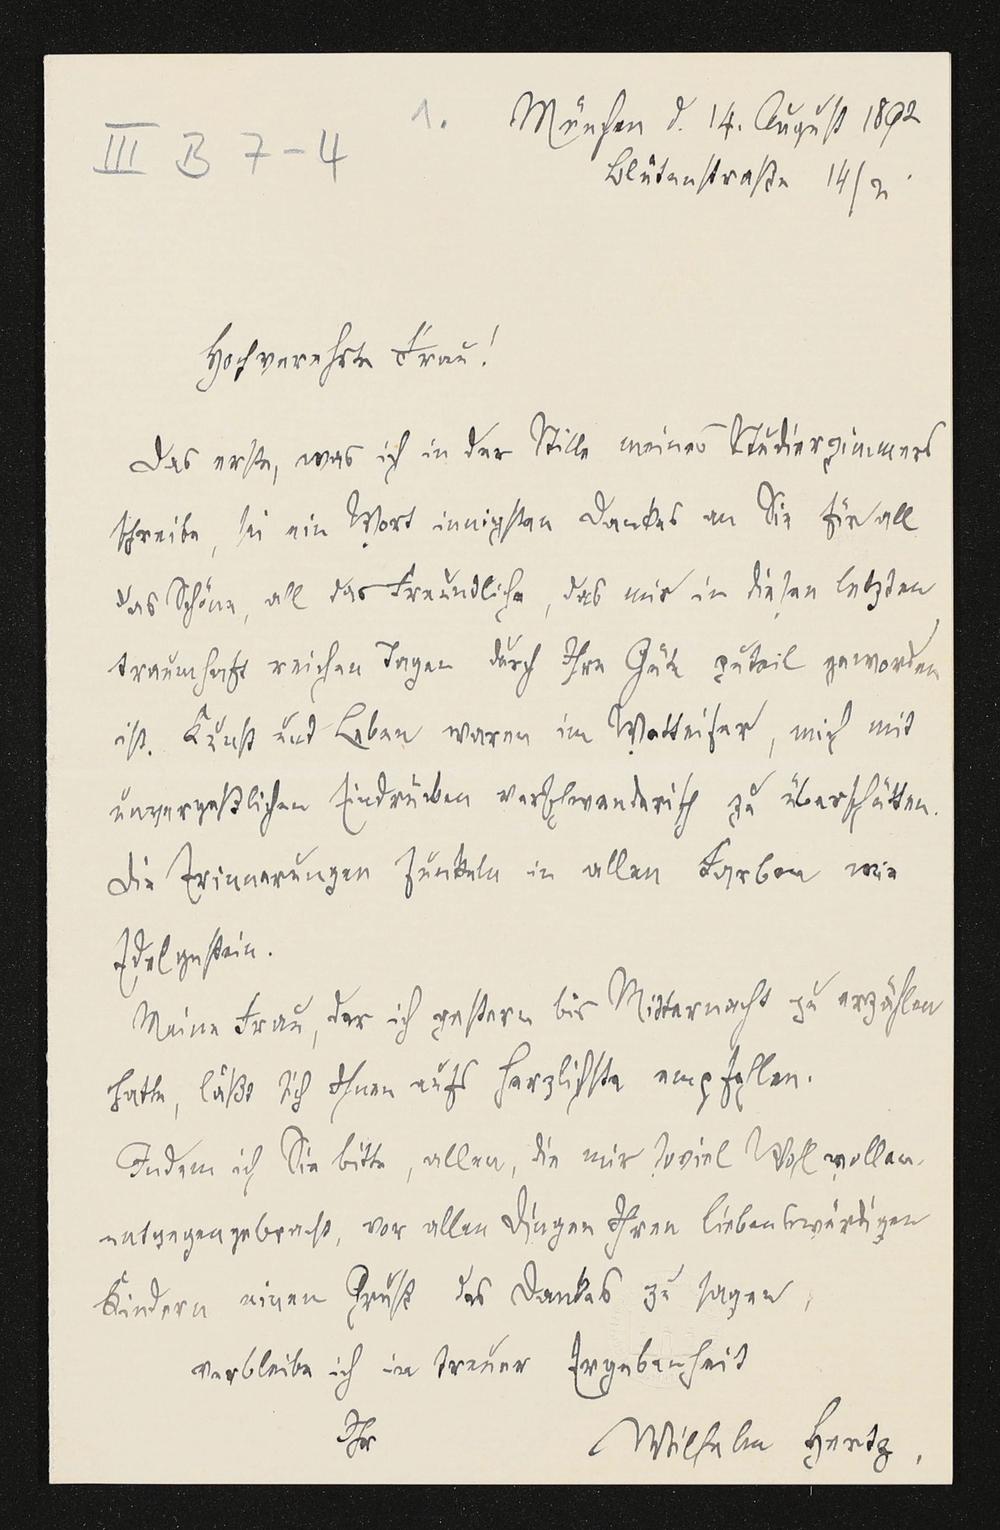 1.
III B 7-4
München d. 14. August 1892
Blütenstraße 14/2.
Hochverehrte Frau!
Das erste, was ich in der Stille meines Studierzimmers
schreibe, sei ein Wort innigsten Dankes an Sie für all
das Schöne, all das Freundliche, das mir in diesen letzten
traumhaft reichen Tagen durch Ihre Güte zuteil geworden
ist. Kunst und Leben waren im Wetteifer, mich mit
unvergeßlichen Eindrücken verschwenderisch zu überschütten.
Die Erinnerungen funkeln in allen Farben wie
Edelgestein.
Meine Frau, der ich gestern bis Mitternacht zu erzählen
hatte, läßt sich Ihnen aufs herzlichste empfehlen.
Indem ich Sie bitte, allen, die mir soviel Wohlwollen
entgegengebracht, vor allen Dingen Ihren liebenswürdigen
Kindern einen Gruß des Dankes zu sagen,
verbleibe ich in treuer Ergebenheit
Ihr Wilhelm Hertz.